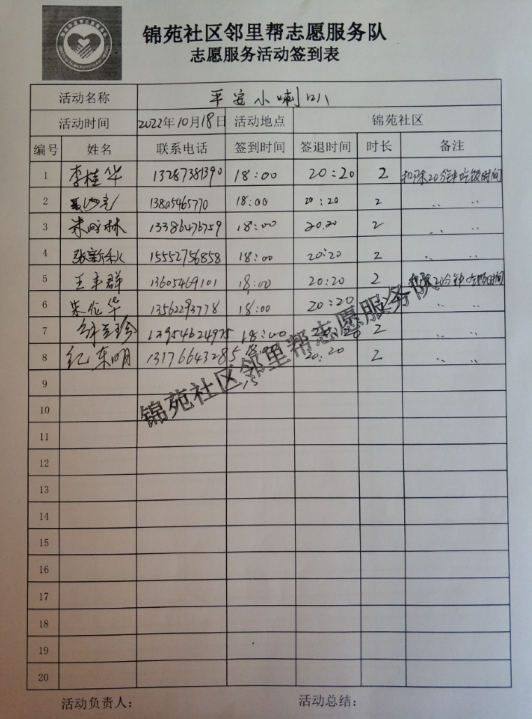 锦苑社区邻里帮志愿服务队
志愿服务活动签到表
活动名称 平安小喇叭
活动时间 2022年10月18日 活动地点 锦苑社区
编号 姓名 联系电话 签到时间 签退时间 时长 备注
1 李桂华 13287381390 18:00 20:20 2 扣除20分钟吃饭时间
2 13805465770 18:00 20:20 2 〃 〃
3 18:00 20:20 2 〃 〃
4 张新秋 15552756858 18:00 20:20 2 〃 〃
5 王丰群 13605469101 18:00 20:20 2 扣除20分钟吃饭时间
6 13562293778 18:00 20:20 2 〃 〃
7 13954624975 18:00 2 〃 〃
8 纪东明 20:20 2 〃 〃
9
10
11
12
13
14
15
16
17
18
19
20
锦苑社区邻里帮志愿服务队
活动负责人： 活动总结：